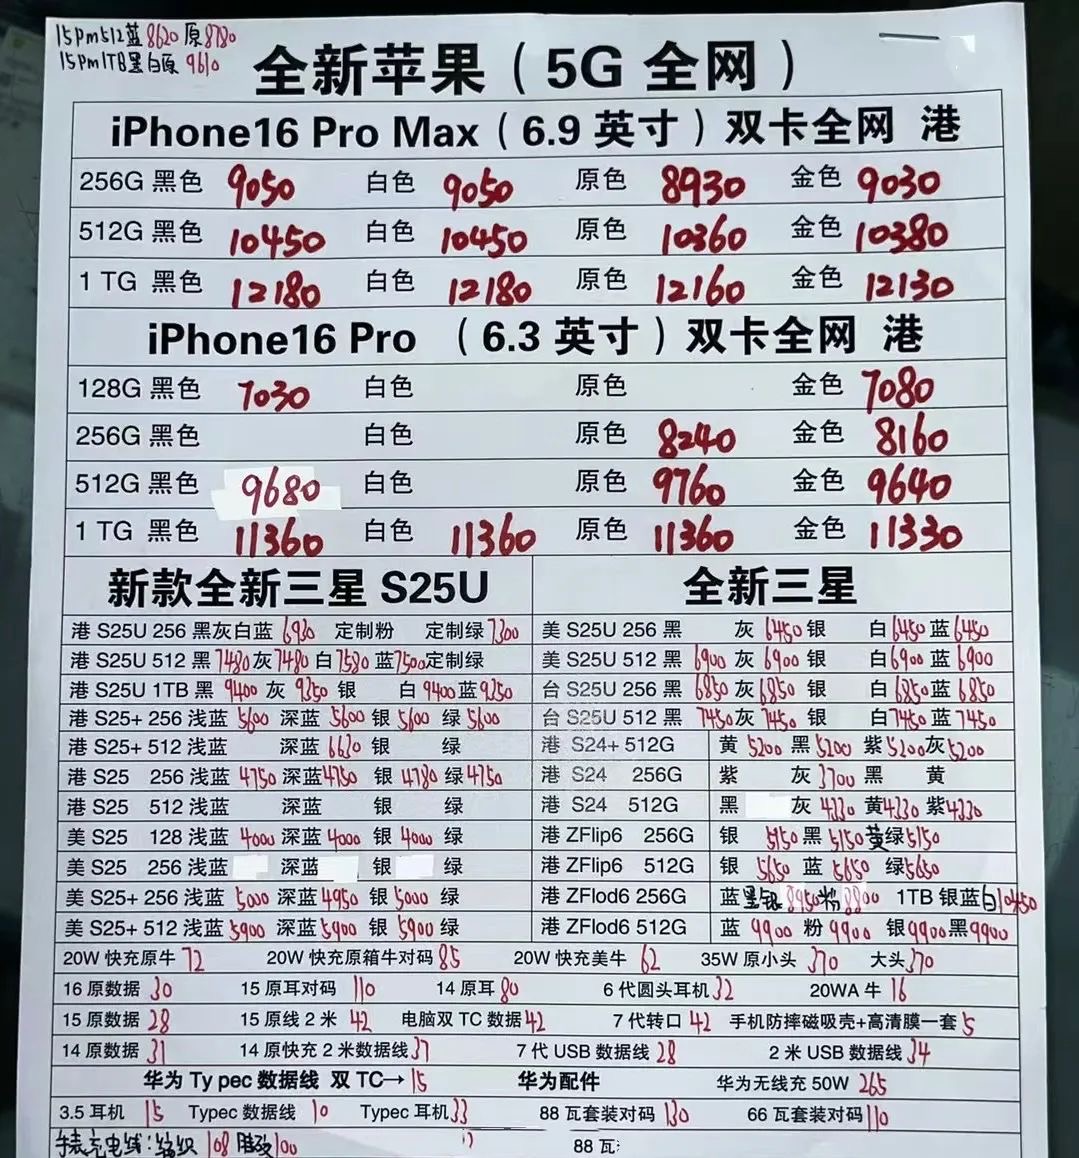 15Pm512蓝8620原8780
15Pm1TB黑白原9610
全新苹果（5G 全网）
iPhone16 Pro Max（6.9 英寸）双卡全网 港
256G 黑色 9050 白色 9050 原色 8930 金色 9030
512G 黑色 10450 白色 10450 原色 10360 金色 10380
1 TG 黑色 12180 白色 12180 原色 12160 金色 12130
iPhone16 Pro （6.3 英寸）双卡全网 港
128G 黑色 7030 白色 原色 金色 7080
256G 黑色 白色 原色 8240 金色 8160
512G 黑色 9680 白色 原色 9760 金色 9640
1 TG 黑色 11360 白色 11360 原色 11360 金色 11330
新款全新三星 S25U
港 S25U 256 黑灰白蓝 6930 定制粉 定制绿 7300
港 S25U 512 黑 7480 灰 7480 白 7580 蓝 7500 定制绿
港 S25U 1TB 黑 9400 灰 9250 银 白 9400 蓝 9250
港 S25+ 256 浅蓝 5600 深蓝 5600 银 5600 绿 5600
港 S25+ 512 浅蓝 深蓝 6620 银 绿
港 S25 256 浅蓝 4750 深蓝 4750 银 4780 绿 4750
港 S25 512 浅蓝 深蓝 银 绿
美 S25 128 浅蓝 4000 深蓝 4000 银 4000 绿
美 S25 256 浅蓝 深蓝 银 绿
美 S25+ 256 浅蓝 5000 深蓝 4950 银 5000 绿
美 S25+ 512 浅蓝 5900 深蓝 5900 银 5900 绿
全新三星
美 S25U 256 黑 灰 6450 银 白 6450 蓝 6450
美 S25U 512 黑 6900 灰 6900 银 白 6900 蓝 6900
台 S25U 256 黑 6850 灰 6850 银 白 6850 蓝 6850
台 S25U 512 黑 7450 灰 7450 银 白 7450 蓝 7450
港 S24+ 512G 黄 5200 黑 5200 紫 5200 灰 5200
港 S24 256G 紫 灰 3700 黑 黄
港 S24 512G 黑 灰 4330 黄 4330 紫 4330
港 ZFlip6 256G 银 5150 黑 5150 黄绿 5150
港 ZFlip6 512G 银 5650 蓝 5650 绿 5650
港 ZFlod6 256G 蓝黑银 8950 粉 8800 1TB 银蓝白 10450
港 ZFlod6 512G 蓝 9900 粉 9900 银 9900 黑 9900
20W 快充原牛 72 20W 快充原箱牛对码 85 20W 快充美牛 62 35W 原小头 370 大头 370
16 原数据 30 15 原耳对码 110 14 原耳 80 6 代圆头耳机 32 20WA 牛 16
15 原数据 28 15 原线 2 米 42 电脑双 TC 数据 42 7 代转口 42 手机防摔磁吸壳+高清膜一套 5
14 原数据 31 14 原快充 2 米数据线 37 7 代 USB 数据线 28 2 米 USB 数据线 34
华为 Ty pec 数据线 双 TC→ 15 华为配件 华为无线充 50W 265
3.5 耳机 15 Typec 数据线 10 Typec 耳机 33 88 瓦套装对码 130 66 瓦套装对码 110
手表充电线：编织 108 100
88 瓦